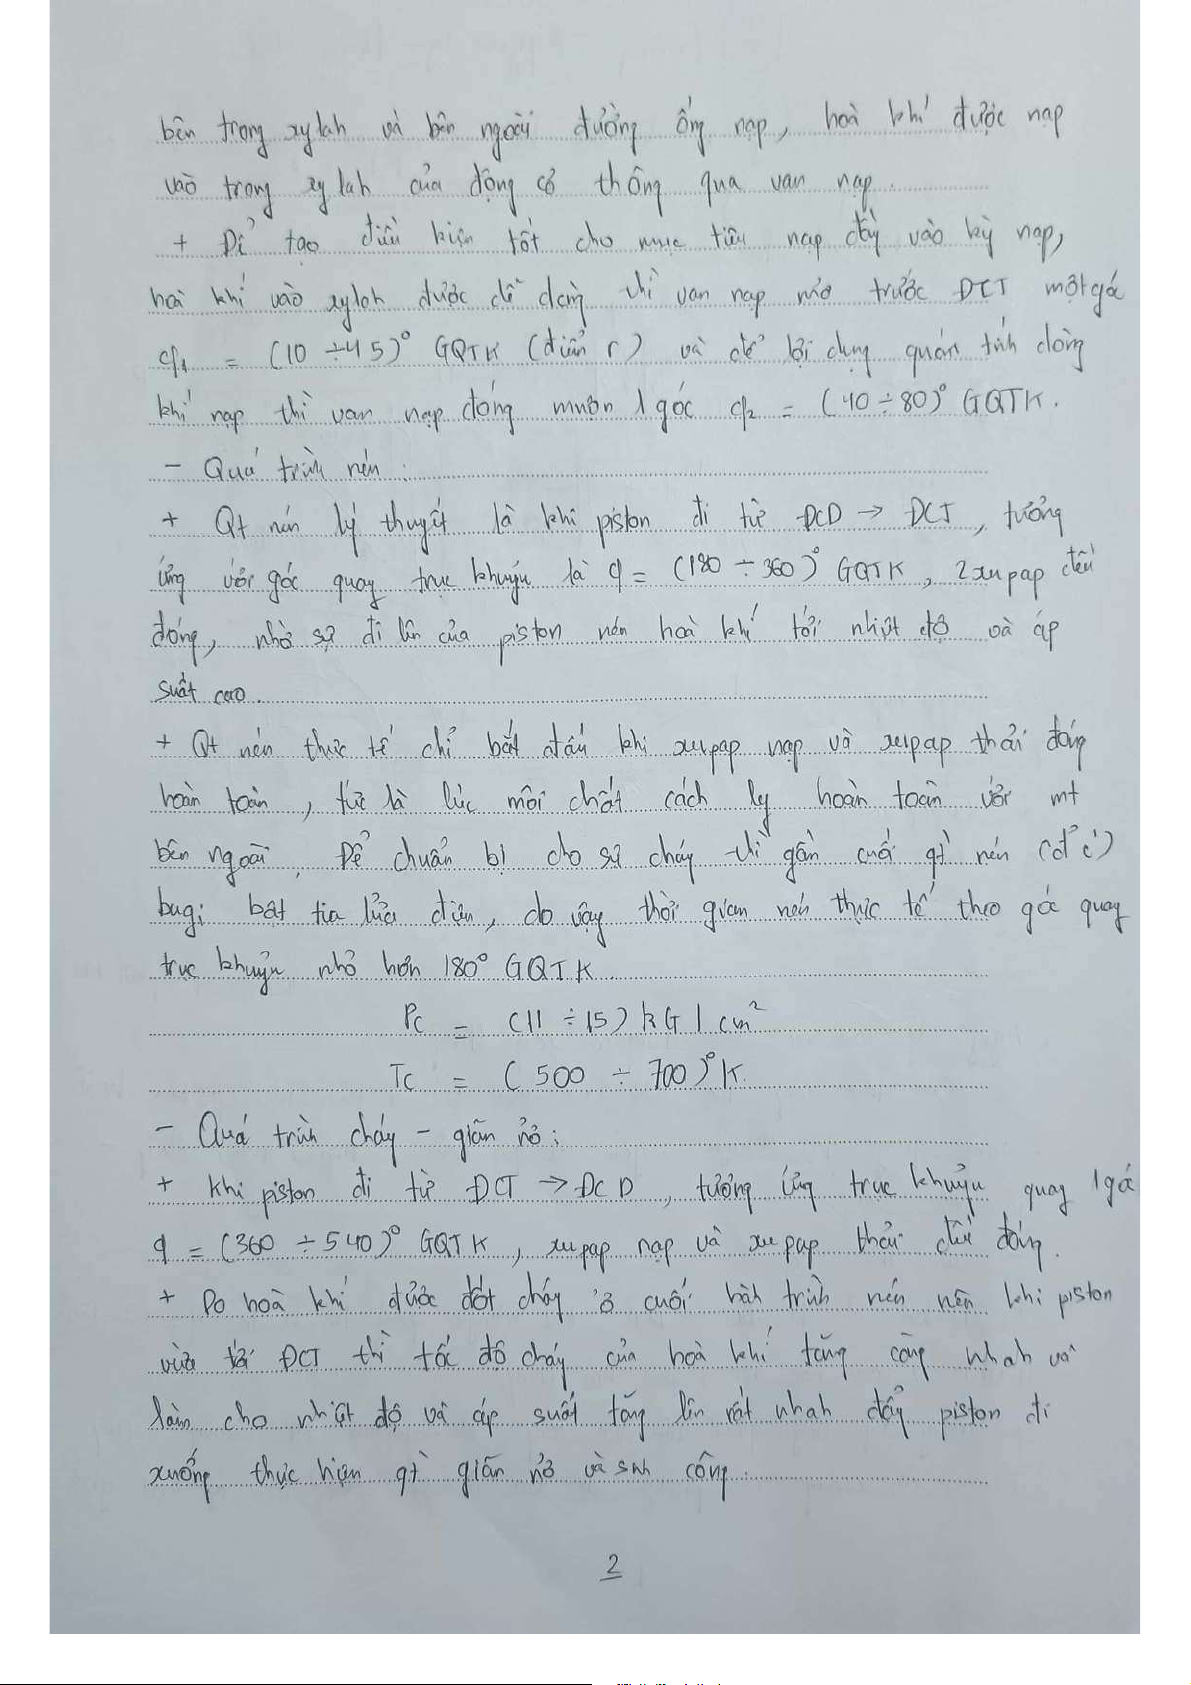 bên trong xylah và bên ngoài đường ống nạp, hoà khí được nạp
vào trong xy lah của động cơ thông qua van nạp.
+ Để tạo điều kiện tốt cho mục tiêu nạp đầy vào kỳ nạp,
hoà khí vào xylah được dễ dàng thì van nạp mở trước ĐCT một góc
φ1 = (10 ÷ 45)° GQTK (điểm r) và để lợi dụng quán tính dòng
khí nạp thì van nạp đóng muộn 1 góc φ2 = (40 ÷ 80)° GQTK.
- Quá trình nén:
+ Qt nén lý thuyết là khi piston đi từ ĐCD → ĐCT, tương
ứng với góc quay trục khuỷu là φ = (180 ÷ 360)° GQTK, 2 xu pap đều
đóng, nhờ sự đi lên của piston nén hoà khí tới nhiệt độ và áp
suất cao.
+ Qt nén thực tế chỉ bắt đầu khi xupap nạp và xupap thải đóng
hoàn toàn, tức là lúc môi chất cách ly hoàn toàn với mt
bên ngoài. Để chuẩn bị cho sự cháy thì gần cuối qt nén (đ' c')
bugi bật tia lửa điện, do vậy thời gian nén thực tế theo góc quay
trục khuỷu nhỏ hơn 180° GQTK
Pc = (11 ÷ 15) kG/cm²
Tc = (500 ÷ 700)°K.
- Quá trình cháy - giãn nở:
+ Khi piston đi từ ĐCT → ĐCD, tương ứng trục khuỷu quay 1 góc
φ = (360 ÷ 540)° GQTK, xu pap nạp và xu pap thải đều đóng.
+ Do hoà khí được đốt cháy ở cuối hành trình nén nên khi piston
vừa tới ĐCT thì tốc độ cháy của hoà khí tăng càng nhah và
làm cho nhiệt độ và áp suất tăng lên rất nhah đẩy piston đi
xuống thực hiện qt giãn nở và snh công.
2